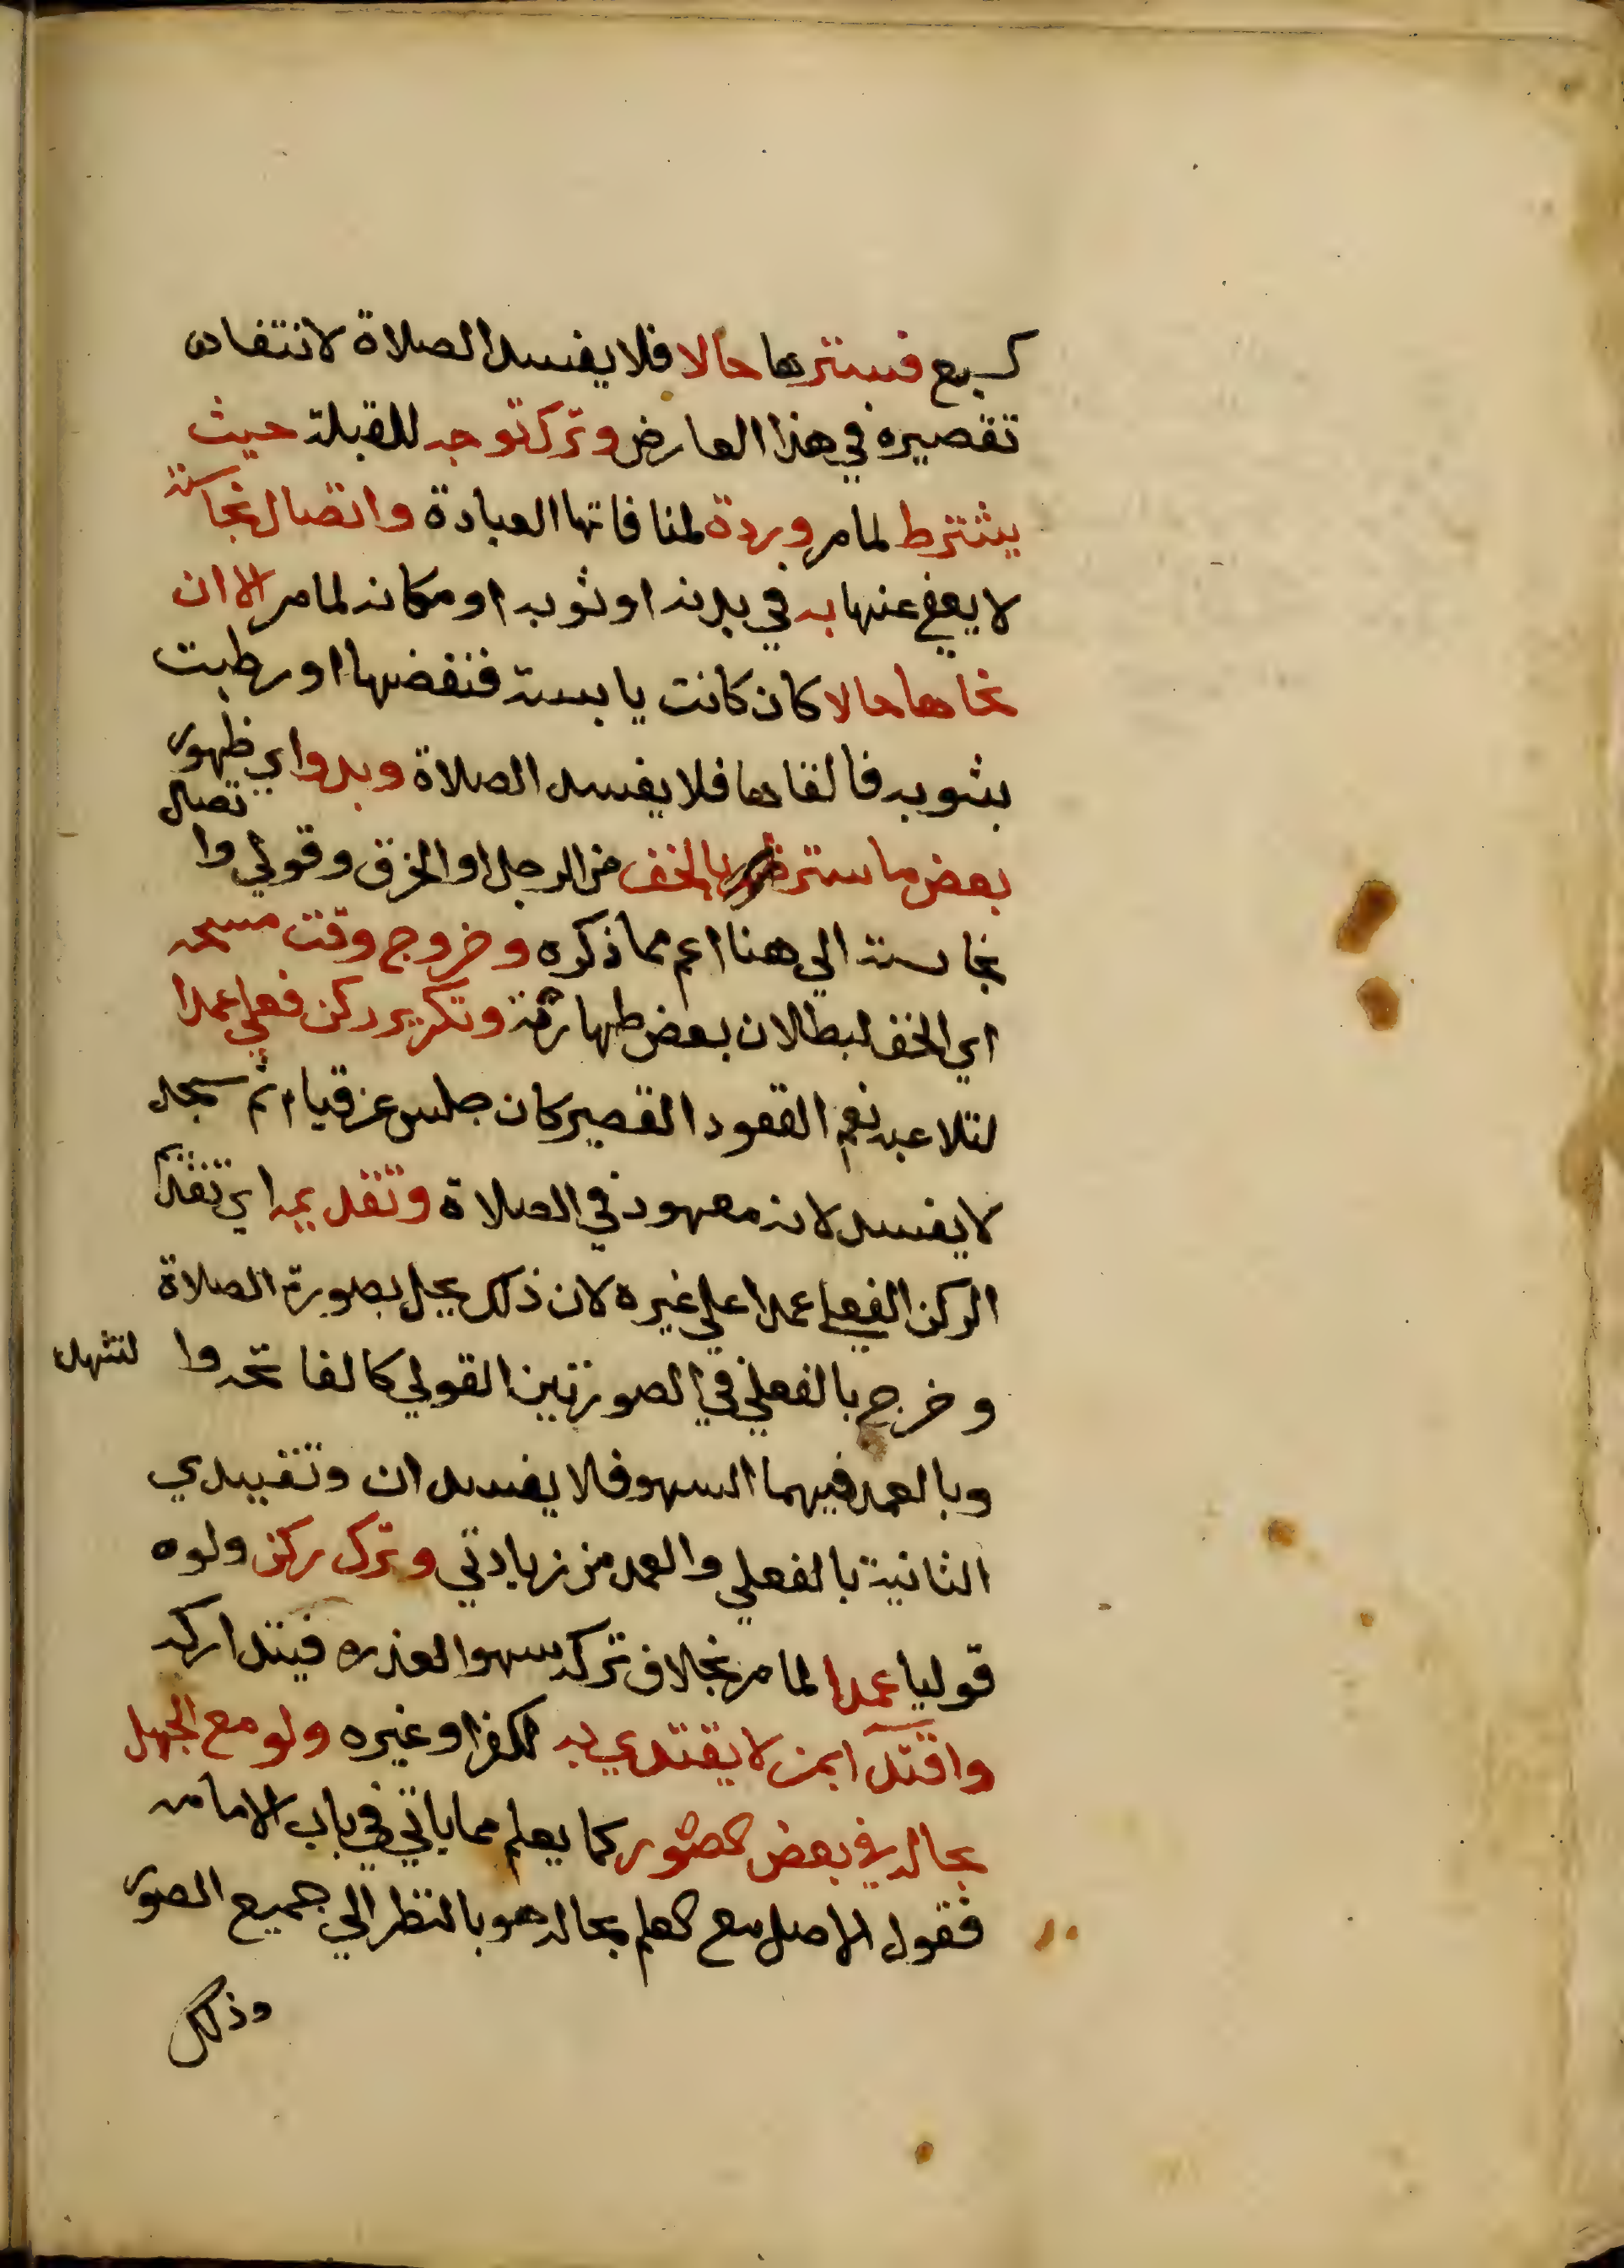 كريح فسترها حالا فلا يفسد الصلاة لانتفاء
تقصيره في هذا العارض وترك توجه للقبلة حيث
يشترط لما مر وردة لمنافاتها العبادة واتصال نجاسة
لا يعفى عنها به في بدنه او ثوبه او مكانه لما مر الا ان
نحاها حالا كان كانت يابسة فنفضها او رطبت
بثوبه فالقاها فلا يفسد الصلاة وبدو اي ظهور
بعض ما ستر بالخف من الرجل او الخرق وقولي واتصال
نجاسة الي هنا اعم مما ذكره وخروج وقت مسحه
اي الخف لبطلان بعض طهارته وتكرير ركن فعلي عمدا
لتلاعبه نعم القعود القصير كان جلس عن قيام ثم سجد
لا يفسد لانه معهود في الصلاة وتقديمه اي تقديم
الركن الفعلي عمدا على غيره لان ذلك يخل بصورة الصلاة
وخرج بالفعلي في الصورتين القولي كالفاتحه والتشهد
وبالعمد فيهما السهو فلا يفسدان وتقييدي
الثانية بالفعلي والعمد من زيادتي وترك ركن ولو
قوليا عمدا لما مر بخلاف تركه سهوا لعذره فيتداركه
واقتدا بمن لا يقتدي به لكفر او غيره ولو مع الجهل
بحاله في بعض الصور كما يعلم مما ياتي في باب الامامه
فقول الاصل مع العلم بحاله هو بالنظر الي جميع الصور
وذلك